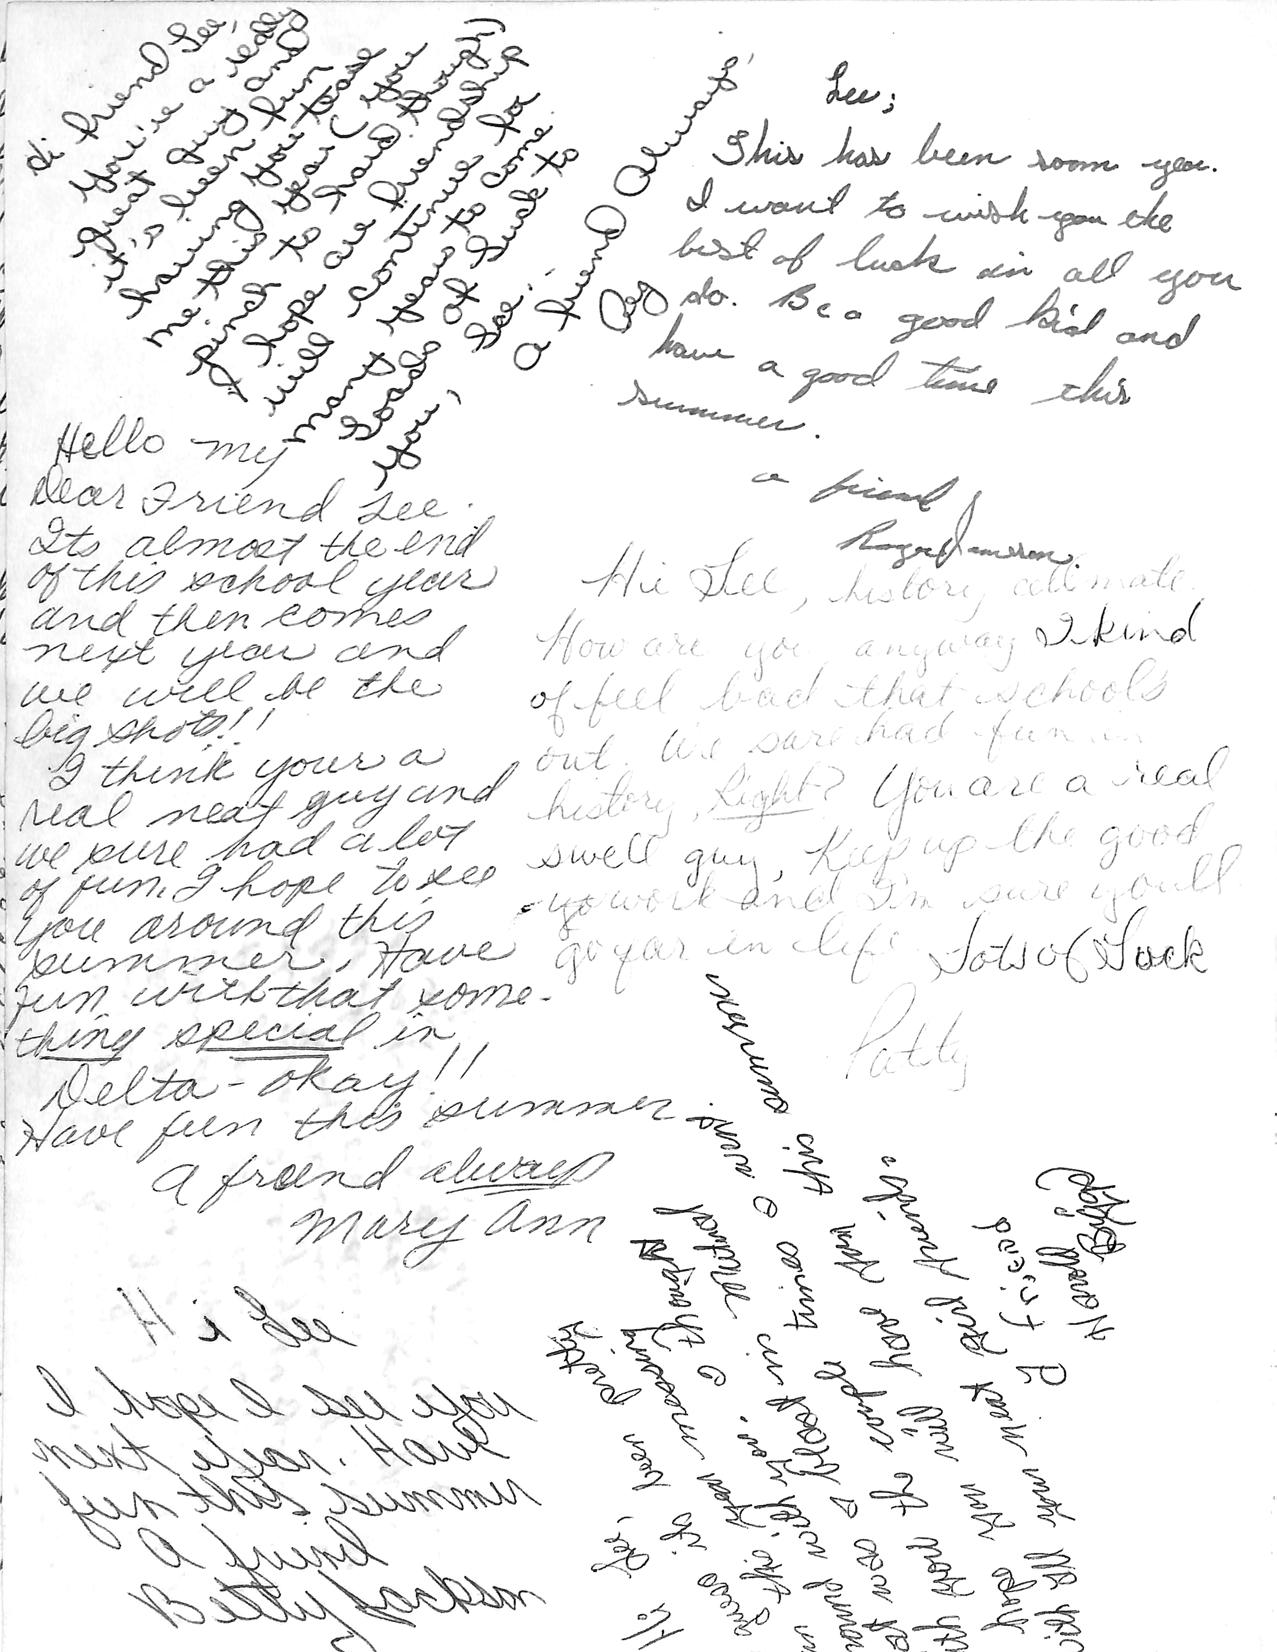 Hi friend Lee,
You're a really
great guy and
it's been fun
having you tease
me this year (You
pinch to hard though)
I hope are friendship
will continue for
many years to come.
Loads of luck to
you, Lee!
a friend always,
Peg
Lee;
This has been soom year.
I want to wish you the
best of luck in all you
do. Be a good kid and
have a good time this
summer.
a friend
Roger Jameson
Hello my
Dear Friend Lee.
Its almost the end
of this school year
and then comes
next year and
we will be the
big shots!!
I think your a
real neat guy and
we sure had a lot
of fun. I hope to see
you around this
summer. Have
fun with that some-
thing special in
Delta - okay!!
Have fun this summer.
A friend always
Mary Ann
Hi Lee, history mate.
How are you anyway I kind
of feel bad that schools
out. We sure had fun in
history, Right? You are a real
swell guy, Keep up the good
work and I'm sure youll
go far in life Lots of Luck
Patty
Hi Lee
I hope I see you
next year. Have
fun this summer
A friend
Betty Jackson
Hi Lee,
guess its been pretty
fun this year messing
around with you. I thought
it was a blast in
with the couple times I went.
hope you will have fun this summer
with all your neat girl friends.
A Friend
Harold Biggs